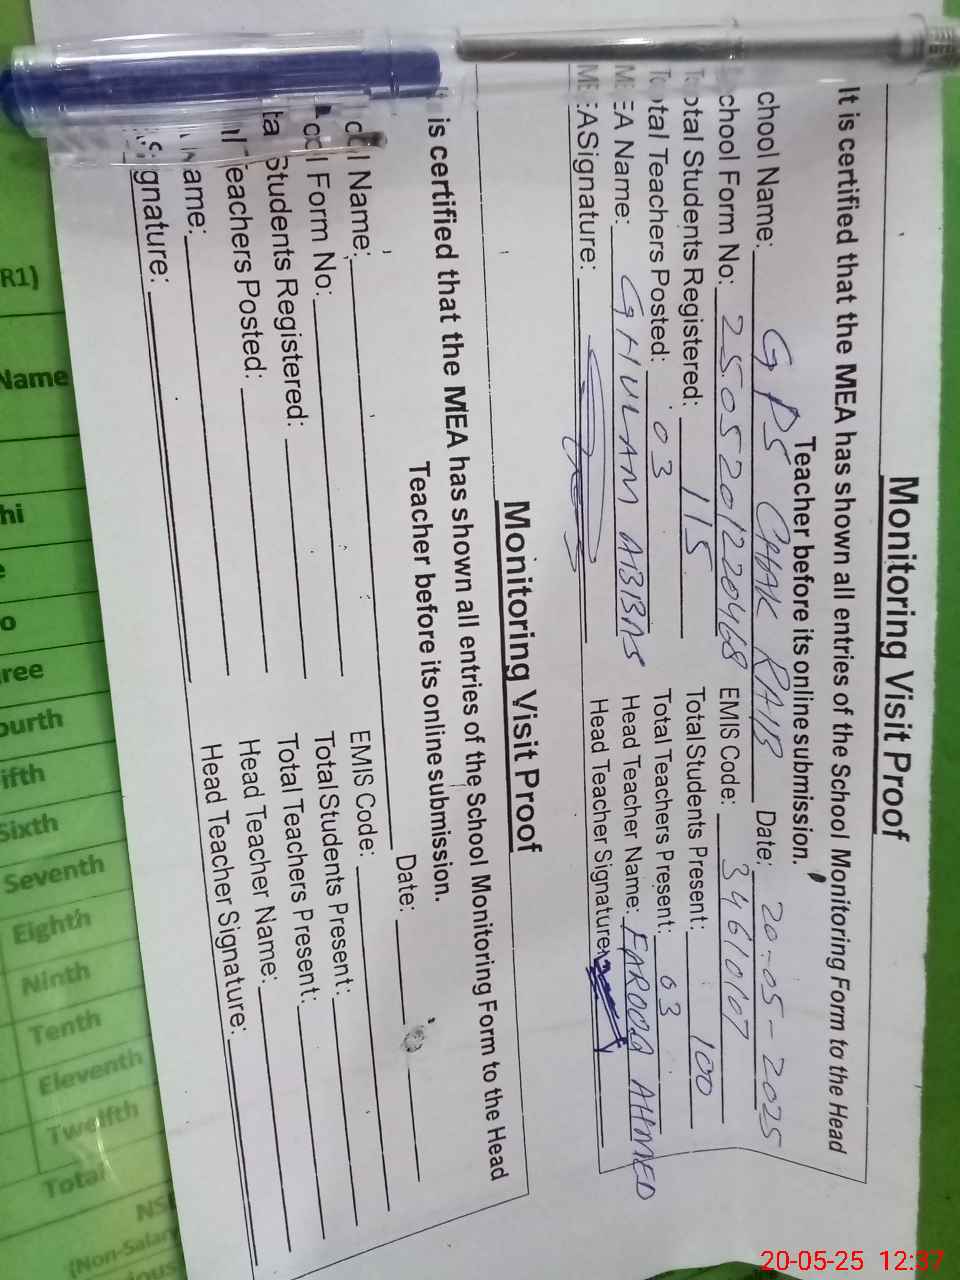 Monitoring Visit Proof
It is certified that the MEA has shown all entries of the School Monitoring Form to the Head
Teacher before its online submission.
chool Name: GPS CHAK RAIB Date: 20-05-2025
chool Form No: 2505201220468 EMIS Code: 34610107
Total Students Registered: 115 Total Students Present: 100
Total Teachers Posted: 03 Total Teachers Present: 03
MEA Name: GHULAM ABBAS Head Teacher Name: FAROOQ AHMED
MEASignature: Head Teacher Signature:
Monitoring Visit Proof
is certified that the MEA has shown all entries of the School Monitoring Form to the Head
Teacher before its online submission.
ool Name: Date:
ool Form No: EMIS Code:
tal Students Registered: Total Students Present:
al Teachers Posted: Total Teachers Present:
ame: Head Teacher Name:
Signature: Head Teacher Signature:
R1)
Name
hi
o
ree
ourth
ifth
Sixth
Seventh
Eighth
Ninth
Tenth
Eleventh
Twelfth
Total
NS
(Non-Salary
20-05-25 12:37